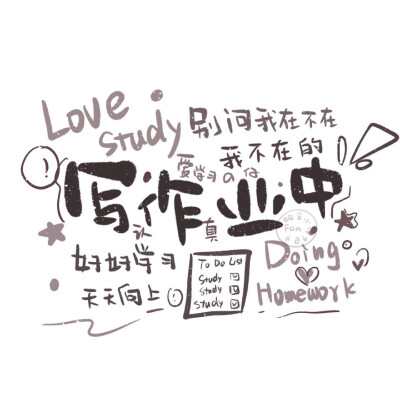 Love
Study
别问我在不在
我不在的
爱学习の仔
写作业中
认真
好好学习
天天向上
To Do List
Study
Study
Study
Doing
Homework